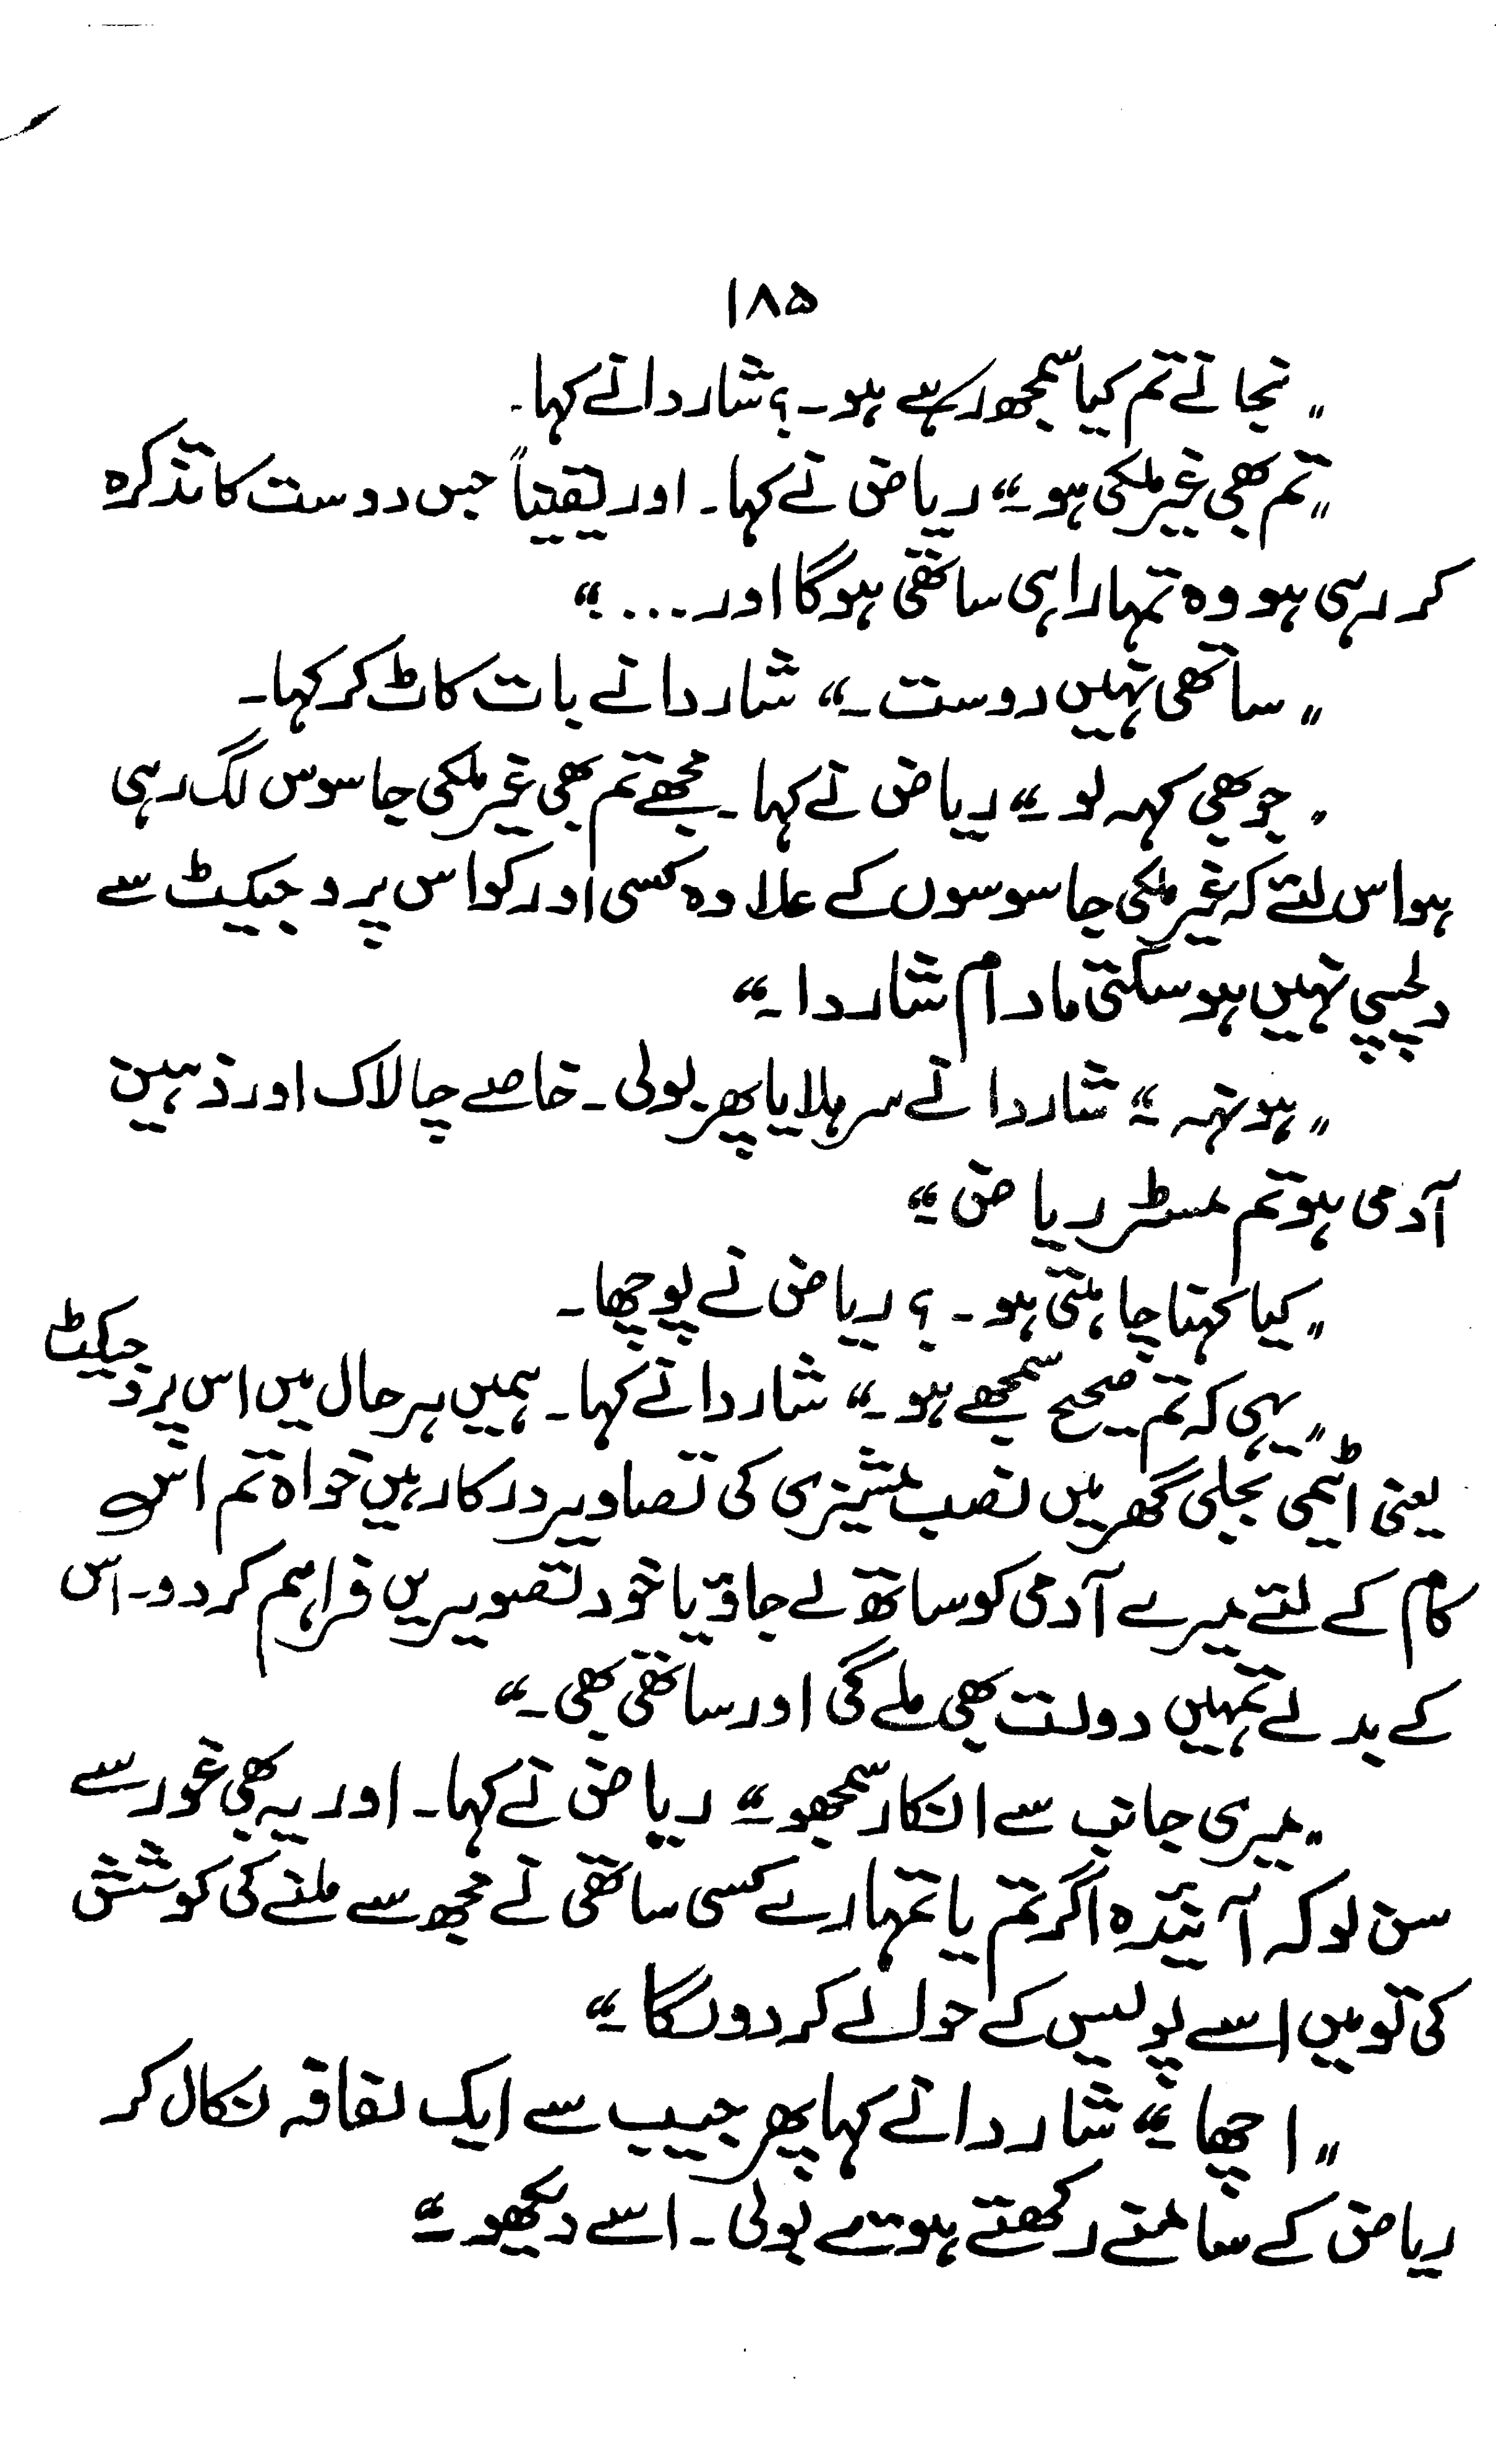 ۱۸۵
"نجانے تم کیا سمجھ رہے ہو۔؟ شاردا نے کہا۔
"تم بھی غیر ملکی ہو۔" ریاض نے کہا۔ اور یقیناً جس دوست کا تذکرہ
کر رہی ہو وہ تمہارا ہی ساتھی ہوگا اور ...."
"ساتھی نہیں دوست۔" شاردا نے بات کاٹ کر کہا۔
"جو بھی کہہ لو۔" ریاض نے کہا۔ مجھے تم بھی غیر ملکی جاسوس لگ رہی
ہو اس لئے کہ غیر ملکی جاسوسوں کے علاوہ کسی اور کو اس پروجیکٹ سے
دلچسپی نہیں ہو سکتی مادام شاردا۔"
"ہونہہ۔" شاردا نے سر ہلایا پھر بولی۔ خاصے چالاک اور ذہین
آدمی ہو تم مسٹر ریاض۔"
"کیا کہنا چاہتی ہو۔؟ ریاض نے پوچھا۔
"یہی کہ تم صحیح سمجھے ہو۔" شاردا نے کہا۔ ہمیں ہر حال میں اس پروجیکٹ
یعنی اٹیمی بجلی گھر میں نصب مشینری کی تصاویر درکار ہیں خواہ تم اس
کام کے لئے میرے آدمی کو ساتھ لے جاؤ یا خود تصویریں فراہم کر دو۔ اس
کے بدلے تمہیں دولت بھی ملے گی اور ساتھی بھی۔"
"میری جانب سے انکار سمجھو۔" ریاض نے کہا۔ اور یہ بھی غور سے
سن لو کہ آئندہ اگر تم یا تمہارے کسی ساتھی نے مجھ سے ملنے کی کوشش
کی تو میں اسے پولیس کے حوالے کر دوں گا۔"
"اچھا۔" شاردا نے کہا پھر جیب سے ایک لفافہ نکال کر
ریاض کے سامنے رکھتے ہوئے بولی۔ اسے دیکھو۔"